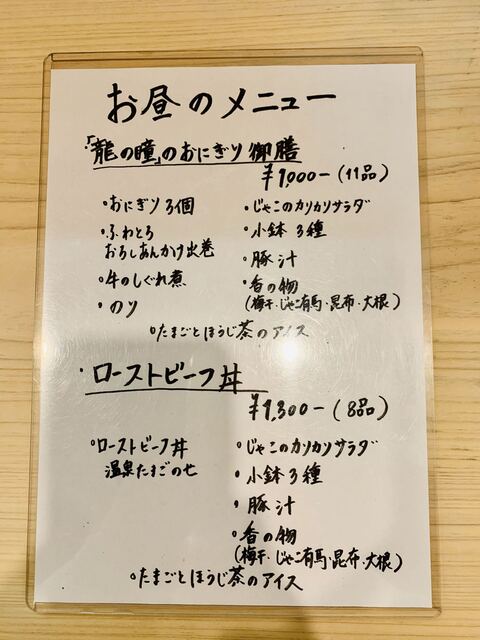 お昼のメニュー
「龍の瞳」のおにぎり御膳
¥1,000-(11品)
・おにぎり3個
・ふわとろ
おろしあんかけ出巻
・牛のしぐれ煮
・のり
・じゃこのカリカリサラダ
・小鉢3種
・豚汁
・香の物
(梅干・じゃこ有馬・昆布・大根)
・たまごとほうじ茶のアイス
・ローストビーフ丼
¥1,300-(8品)
・ローストビーフ丼
温泉たまごのせ
・じゃこのカリカリサラダ
・小鉢3種
・豚汁
・香の物
(梅干・じゃこ有馬・昆布・大根)
・たまごとほうじ茶のアイス